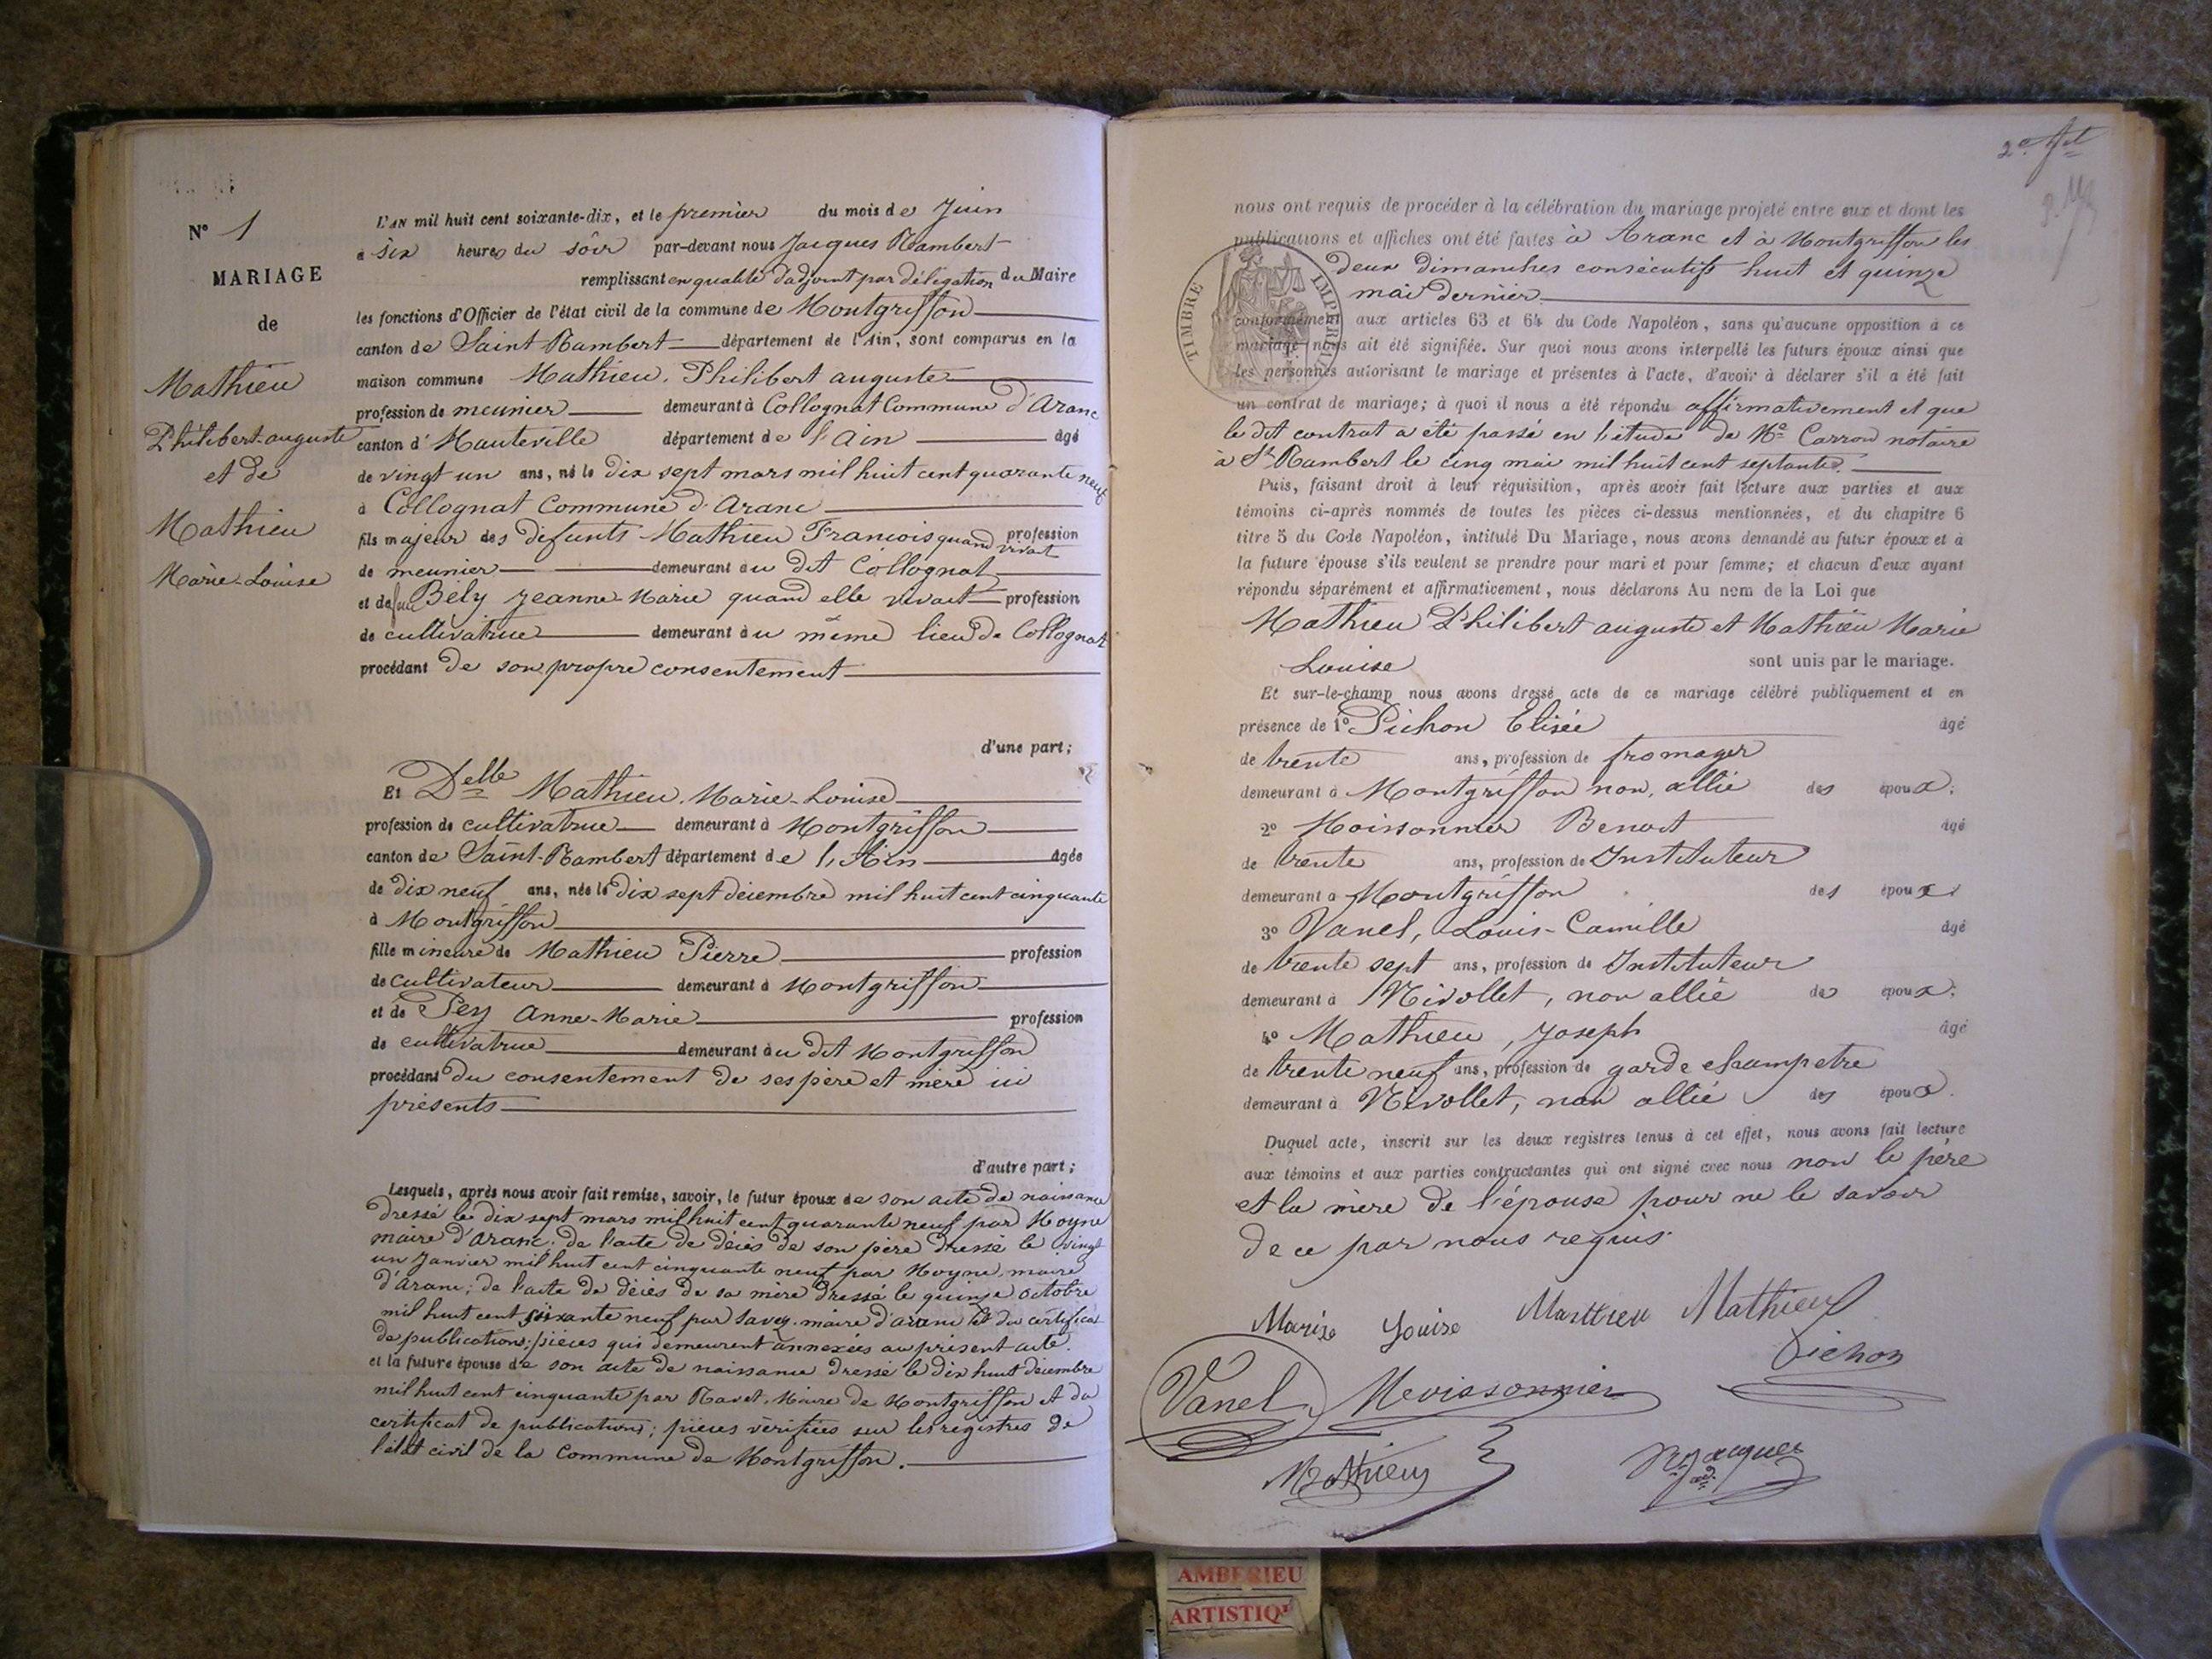 N° 1
MARIAGE
de
Mathieu
Philibert-auguste
et de
Mathieu
Marie-Louise
L'AN mil huit cent soixante-dix, et le premier du mois de Juin
à six heures du soir par-devant nous Jacques Rambert
remplissant en qualité d'adjoint par délégation du Maire
les fonctions d'Officier de l'état civil de la commune de Montgriffon
canton de Saint Rambert département de l'Ain, sont comparus en la
maison commune Mathieu, Philibert auguste
profession de meunier demeurant à Collognat Commune d'Aranc
canton d'Hauteville département de l'Ain âgé
de vingt un ans, né le dix sept mars mil huit cent quarante neuf
à Collognat Commune d'Aranc
fils majeur des défunts Mathieu Francois quand vivait profession
de meunier demeurant au dit Collognat
et de feu Bély Jeanne-Marie quand elle vivait profession
de cultivatrice demeurant au même lieu de Collognat
procédant de son propre consentement
d'une part;
Et Delle Mathieu, Marie-Louise
profession de cultivatrice demeurant à Montgriffon
canton de Saint-Rambert département de l'Ain âgée
de dix neuf ans, née le dix sept décembre mil huit cent cinquante
à Montgriffon
fille mineure de Mathieu Pierre profession
de cultivateur demeurant à Montgriffon
et de Pey Anne-Marie profession
de cultivatrice demeurant au dit Montgriffon
procédant du consentement de ses père et mère ici
présents
d'autre part;
Lesquels, après nous avoir fait remise, savoir, le futur époux de son acte de naissance
dressé le dix sept mars mil huit cent quarante neuf par Moyne
maire d'Aranc; de l'acte de décès de son père dressé le vingt
un Janvier mil huit cent cinquante neuf par Moyne, maire
d'Aranc; de l'acte de décès de sa mère dressé le quinze octobre
mil huit cent soixante neuf par Savey, maire d'aranc et du certificat
de publications; pièces qui demeurent annexées au présent acte.
et la future épouse de son acte de naissance dressé le dix huit décembre
mil huit cent cinquante par Ravet, Maire de Montgriffon et du
certificat de publications; pièces vérifiées sur les registres de
l'état civil de la Commune de Montgriffon.
nous ont requis de procéder à la célébration du mariage projeté entre eux et dont les
publications et affiches ont été faites à Aranc et à Montgriffon les
deux dimanches consécutifs huit et quinze
mai dernier
TIMBRE IMPÉRIAL
conformément aux articles 63 et 64 du Code Napoléon, sans qu'aucune opposition à ce
mariage nous ait été signifiée. Sur quoi nous avons interpellé les futurs époux ainsi que
les personnes autorisant le mariage et présentes à l'acte, d'avoir à déclarer s'il a été fait
un contrat de mariage; à quoi il nous a été répondu affirmativement et que
le dit contrat a été passé en l'étude de Me Carron notaire
à St Rambert le cinq mai mil huit cent septante.
Puis, faisant droit à leur réquisition, après avoir fait lecture aux parties et aux
témoins ci-après nommés de toutes les pièces ci-dessus mentionnées, et du chapitre 6
titre 5 du Code Napoléon, intitulé Du Mariage, nous avons demandé au futur époux et à
la future épouse s'ils veulent se prendre pour mari et pour femme; et chacun d'eux ayant
répondu séparément et affirmativement, nous déclarons Au nom de la Loi que
Mathieu Philibert auguste et Mathieu Marie
Louise sont unis par le mariage.
Et sur-le-champ nous avons dressé acte de ce mariage célébré publiquement et en
présence de 1° Pichon Elisée âgé
de trente ans, profession de fromager
demeurant à Montgriffon non, allié des époux;
2° Moissonnier Benoit âgé
de trente ans, profession de Instituteur
demeurant à Montgriffon des époux;
3° Vanel, Louis-Camille âgé
de trente sept ans, profession de Instituteur
demeurant à Nivollet, non allié des époux;
4° Mathieu, Joseph âgé
de trente neuf ans, profession de garde champetre
demeurant à Nivollet, non allié des époux.
Duquel acte, inscrit sur les deux registres tenus à cet effet, nous avons fait lecture
aux témoins et aux parties contractantes qui ont signé avec nous non le père
et la mère de l'épouse pour ne le savoir
de ce par nous requis.
Marie Louise Mathieu Mathieu
Pichon
Vanel Moissonnier
Mathieu
R. Jacques
AMBERIEU
ARTISTIQ